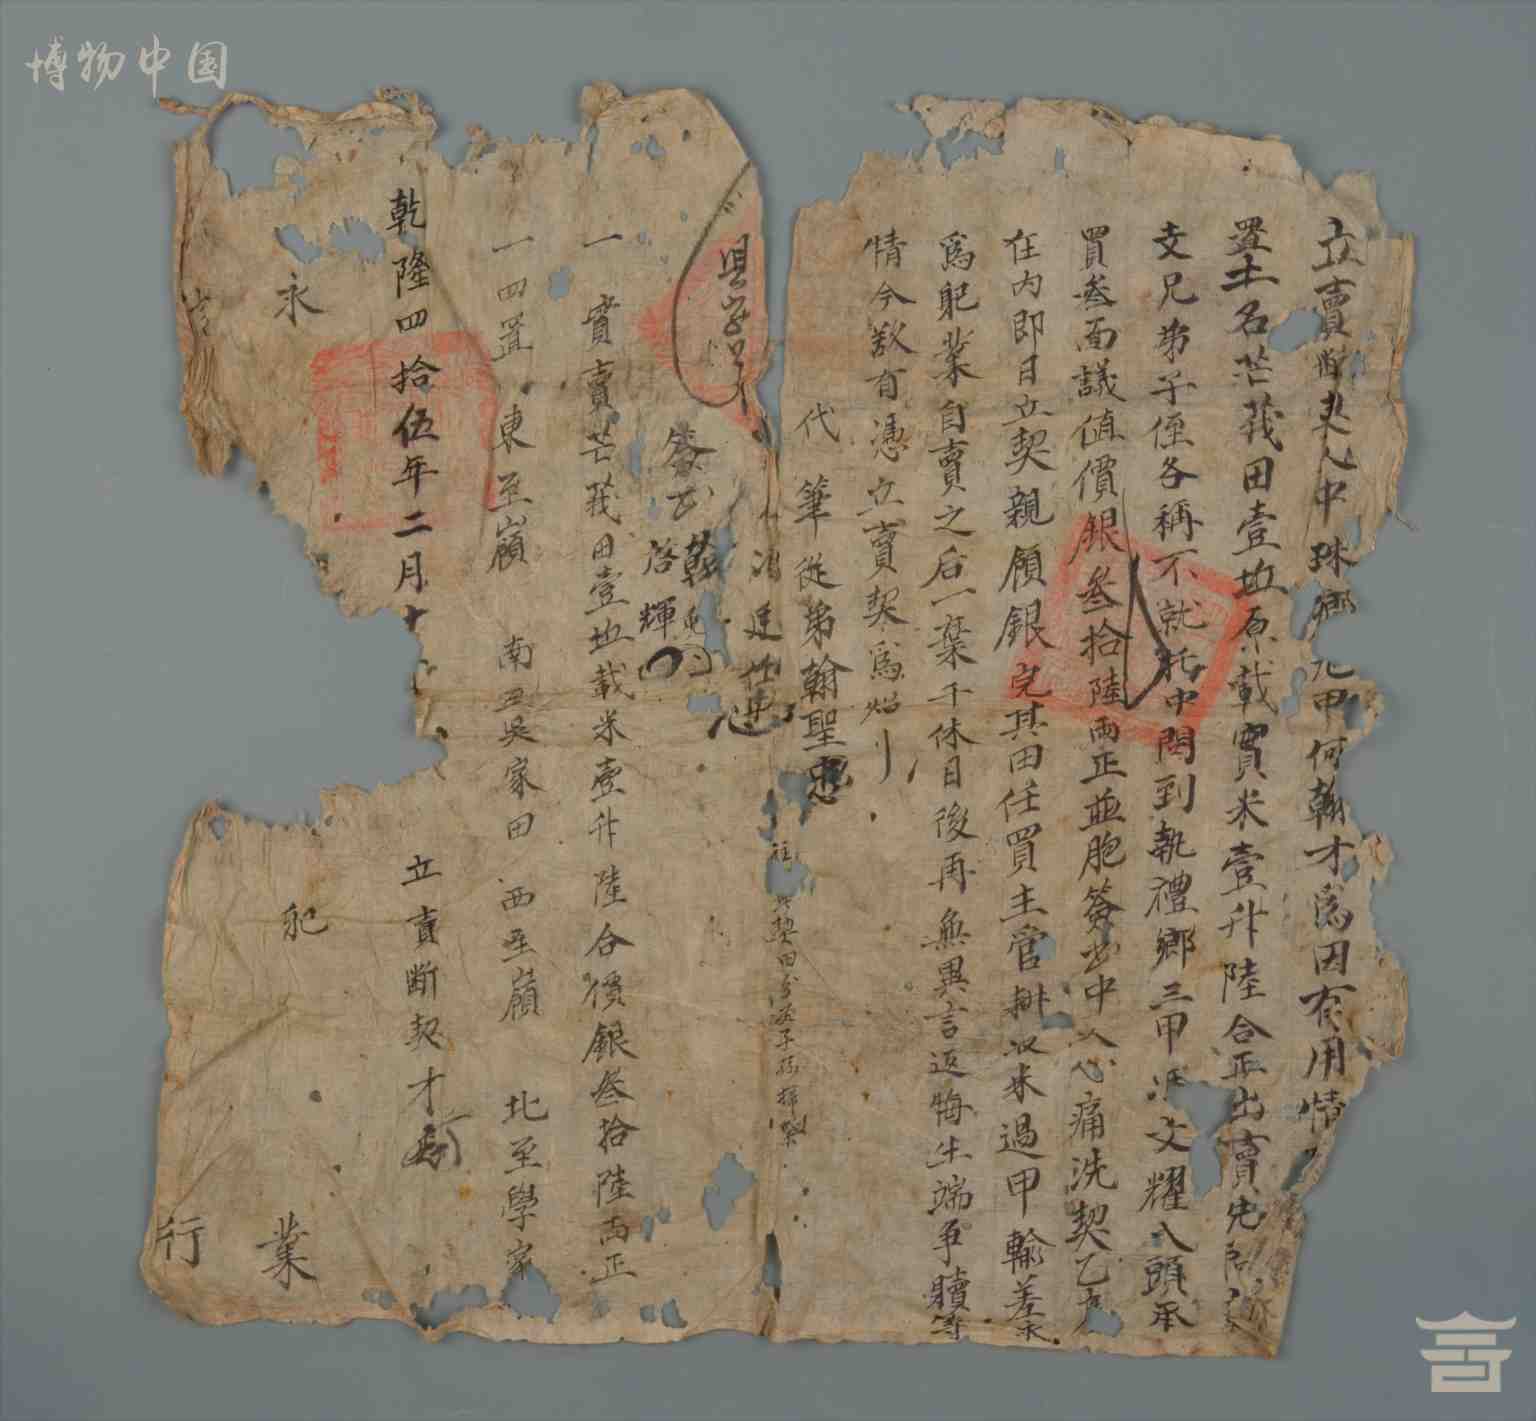 博物中国
立賣斷契人中珠鄉九甲何翰才爲因有用情
置土名芒莪田壹坵原載實米壹升陸合正出賣先問
支兄弟子侄各稱不就托中問到執禮鄉三甲洪文耀入頭承
買叁面議值價銀叁拾陸兩正並胞簽書中人心痛洗契乙
在內即日立契親領銀完其田任買主管耕收米過甲輸差
爲肥業自賣之后一葉千休日後再無異言返悔生端爭贖等
情今欲有憑立賣契爲炤
代筆從弟翰聖
簽書
啓輝
一實賣芒莪田壹坵載米壹升陸合價銀叁拾陸兩正
一四置 東至嶺 南至吳家田 西至嶺 北至學家
乾隆四拾伍年二月十
立賣斷契才
永 肥 業
行